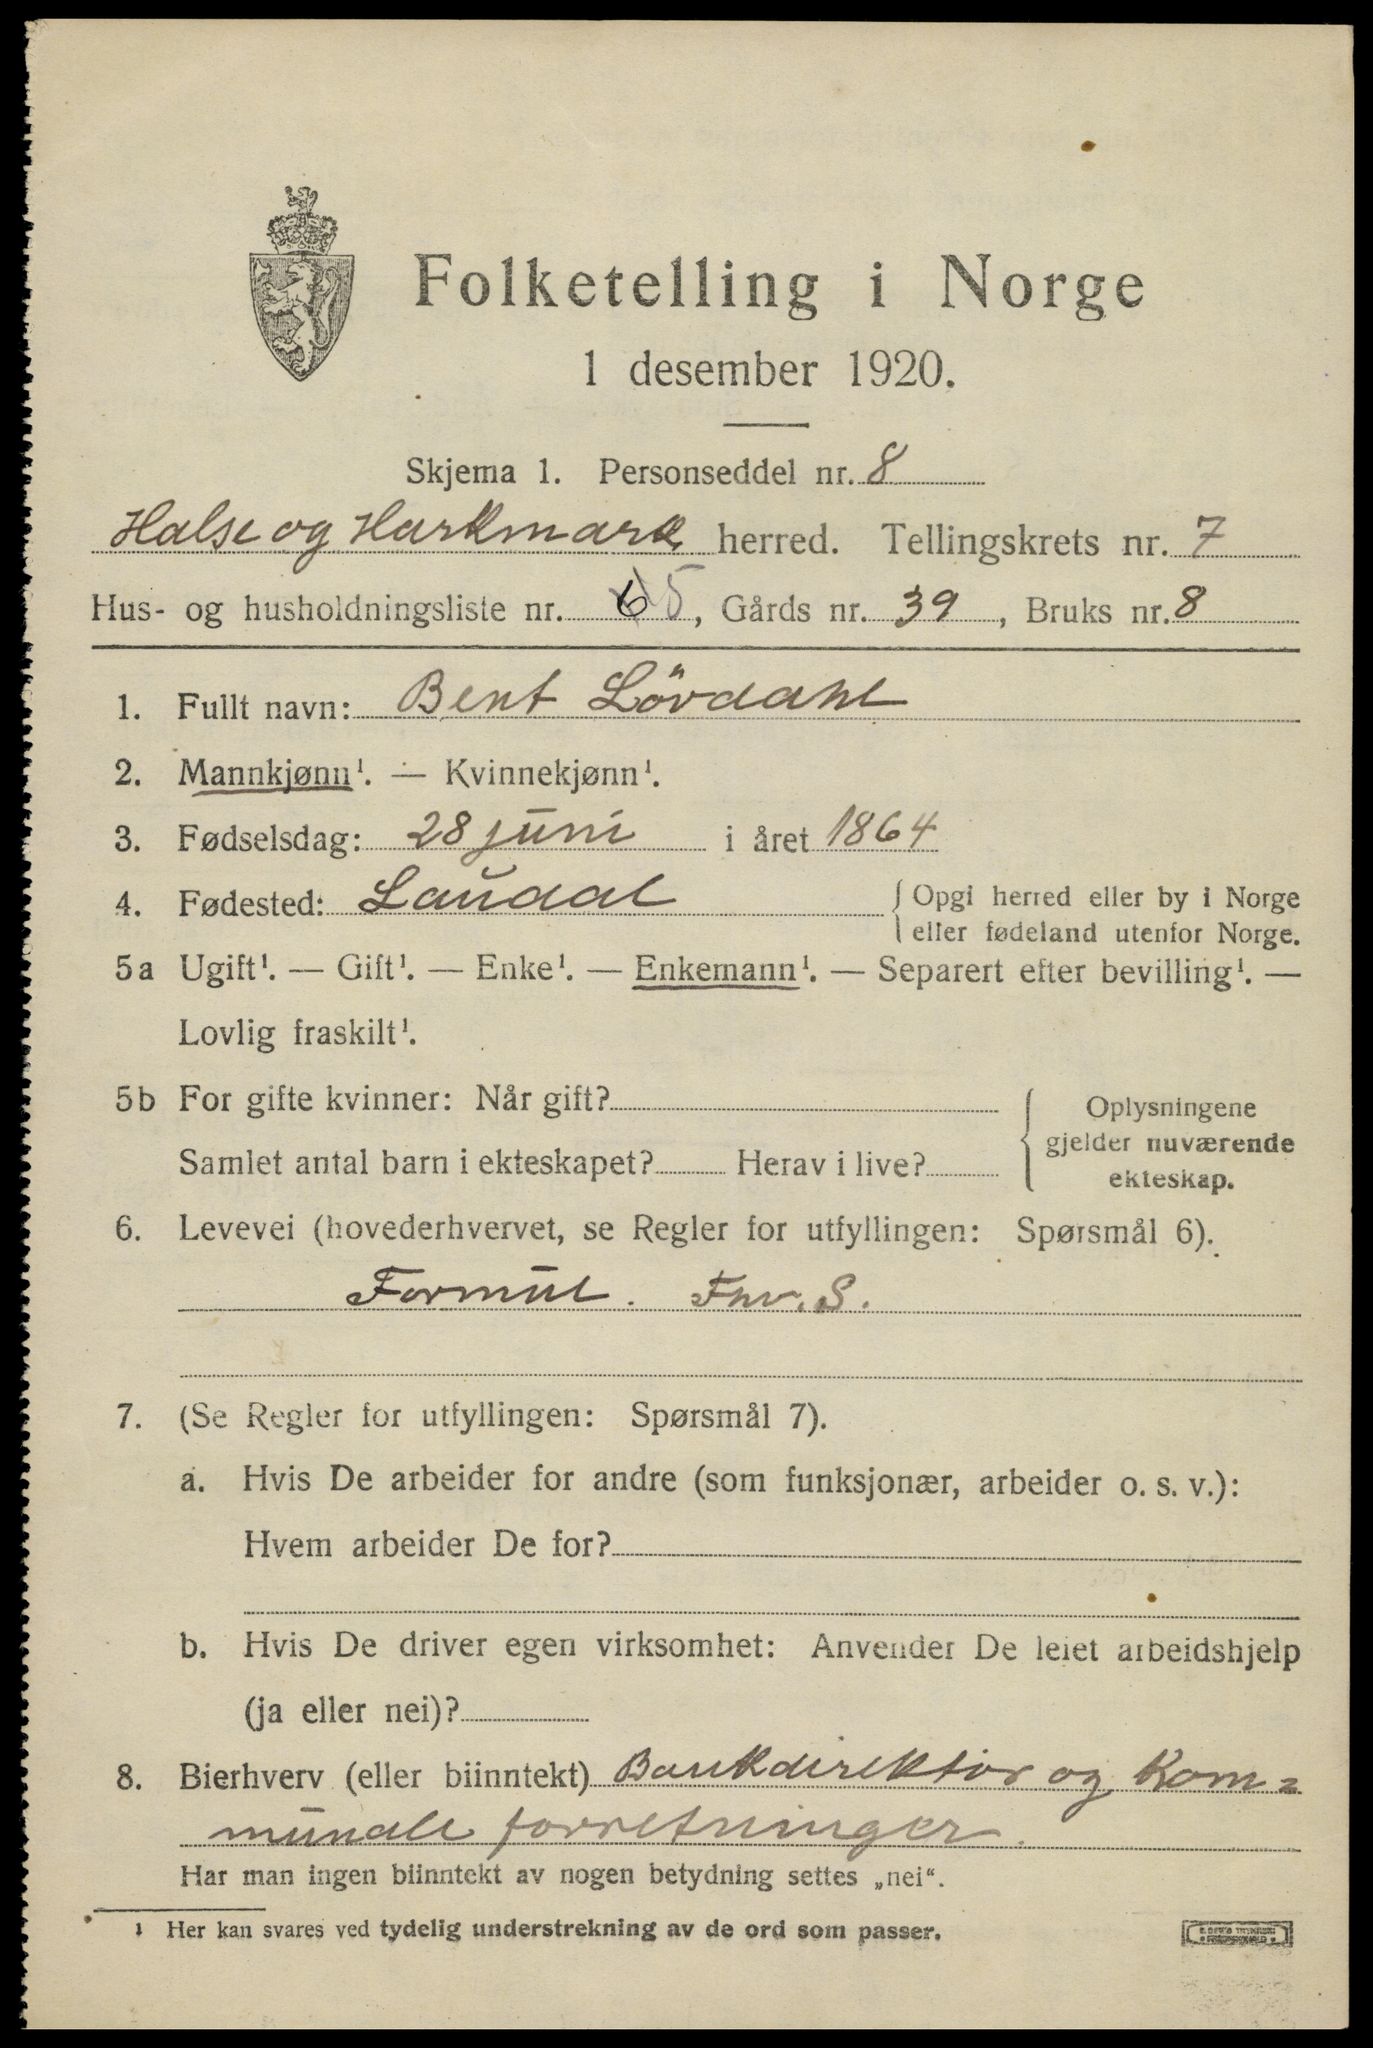 Folketelling i Norge
1 desember 1920.
Skjema 1. Personseddel nr. 8
Halse og Harkmark herred. Tellingskrets nr. 7
Hus- og husholdningsliste nr. 65, Gårds nr. 39, Bruks nr. 8
1. Fullt navn: Bent Lövdahl
2. Mannkjønn¹. — Kvinnekjønn¹.
3. Fødselsdag: 28 juni i året 1864
4. Fødested: Laudal
{ Opgi herred eller by i Norge
eller fødeland utenfor Norge.
5a Ugift¹. — Gift¹. — Enke¹. — Enkemann¹. — Separert efter bevilling¹. —
Lovlig fraskilt¹.
5b For gifte kvinner: Når gift?
Samlet antal barn i ekteskapet? Herav i live?
{ Oplysningene
gjelder nuværende
ekteskap.
6. Levevei (hovederhvervet, se Regler for utfyllingen: Spørsmål 6).
Formul. Fhv. S.
7. (Se Regler for utfyllingen: Spørsmål 7).
a. Hvis De arbeider for andre (som funksjonær, arbeider o. s. v.):
Hvem arbeider De for?
b. Hvis De driver egen virksomhet: Anvender De leiet arbeidshjelp
(ja eller nei)?
8. Bierhverv (eller biinntekt) Bankdirektör og Kom=
munale forretninger.
Har man ingen biinntekt av nogen betydning settes „nei“.
¹ Her kan svares ved tydelig understrekning av de ord som passer.